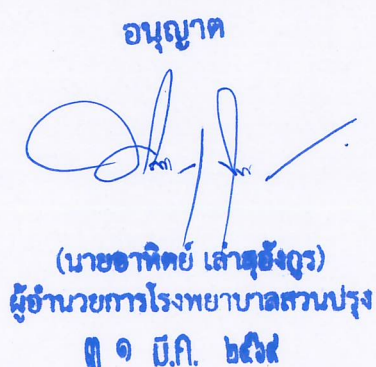 อนุญาต
(นายอาทิตย์ เล่าสุอังกูร)
ผู้อำนวยการโรงพยาบาลสวนปรุง
๓ ๑ มี.ค.